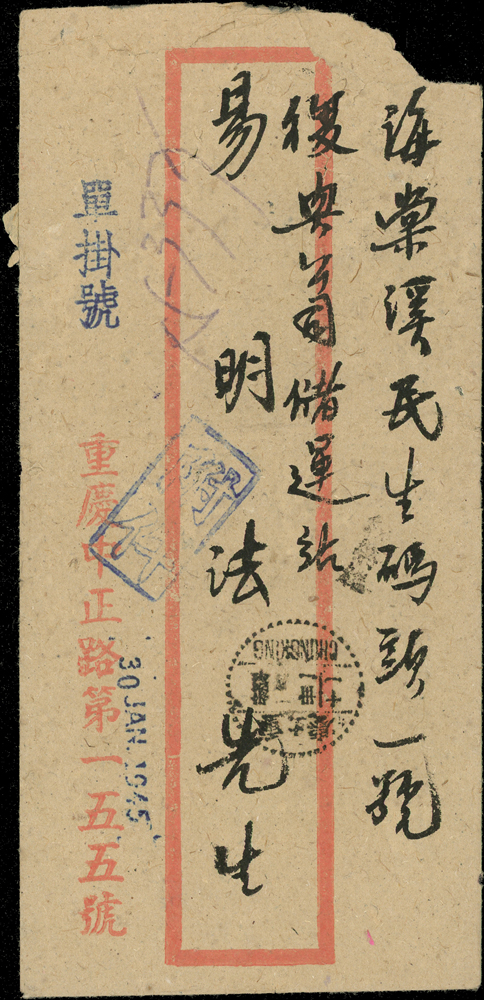 海棠溪民生码頭一號
復興公司儲運站
易明法先生
單掛號
重慶中正路第一五五號
30 JAN. 1945
CHUNGKING